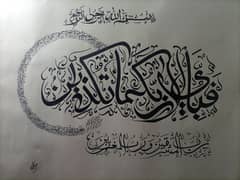 بسم الله الرحمن الرحيم
فبأي آلاء ربكما تكذبان
رب المشرقين ورب المغربين